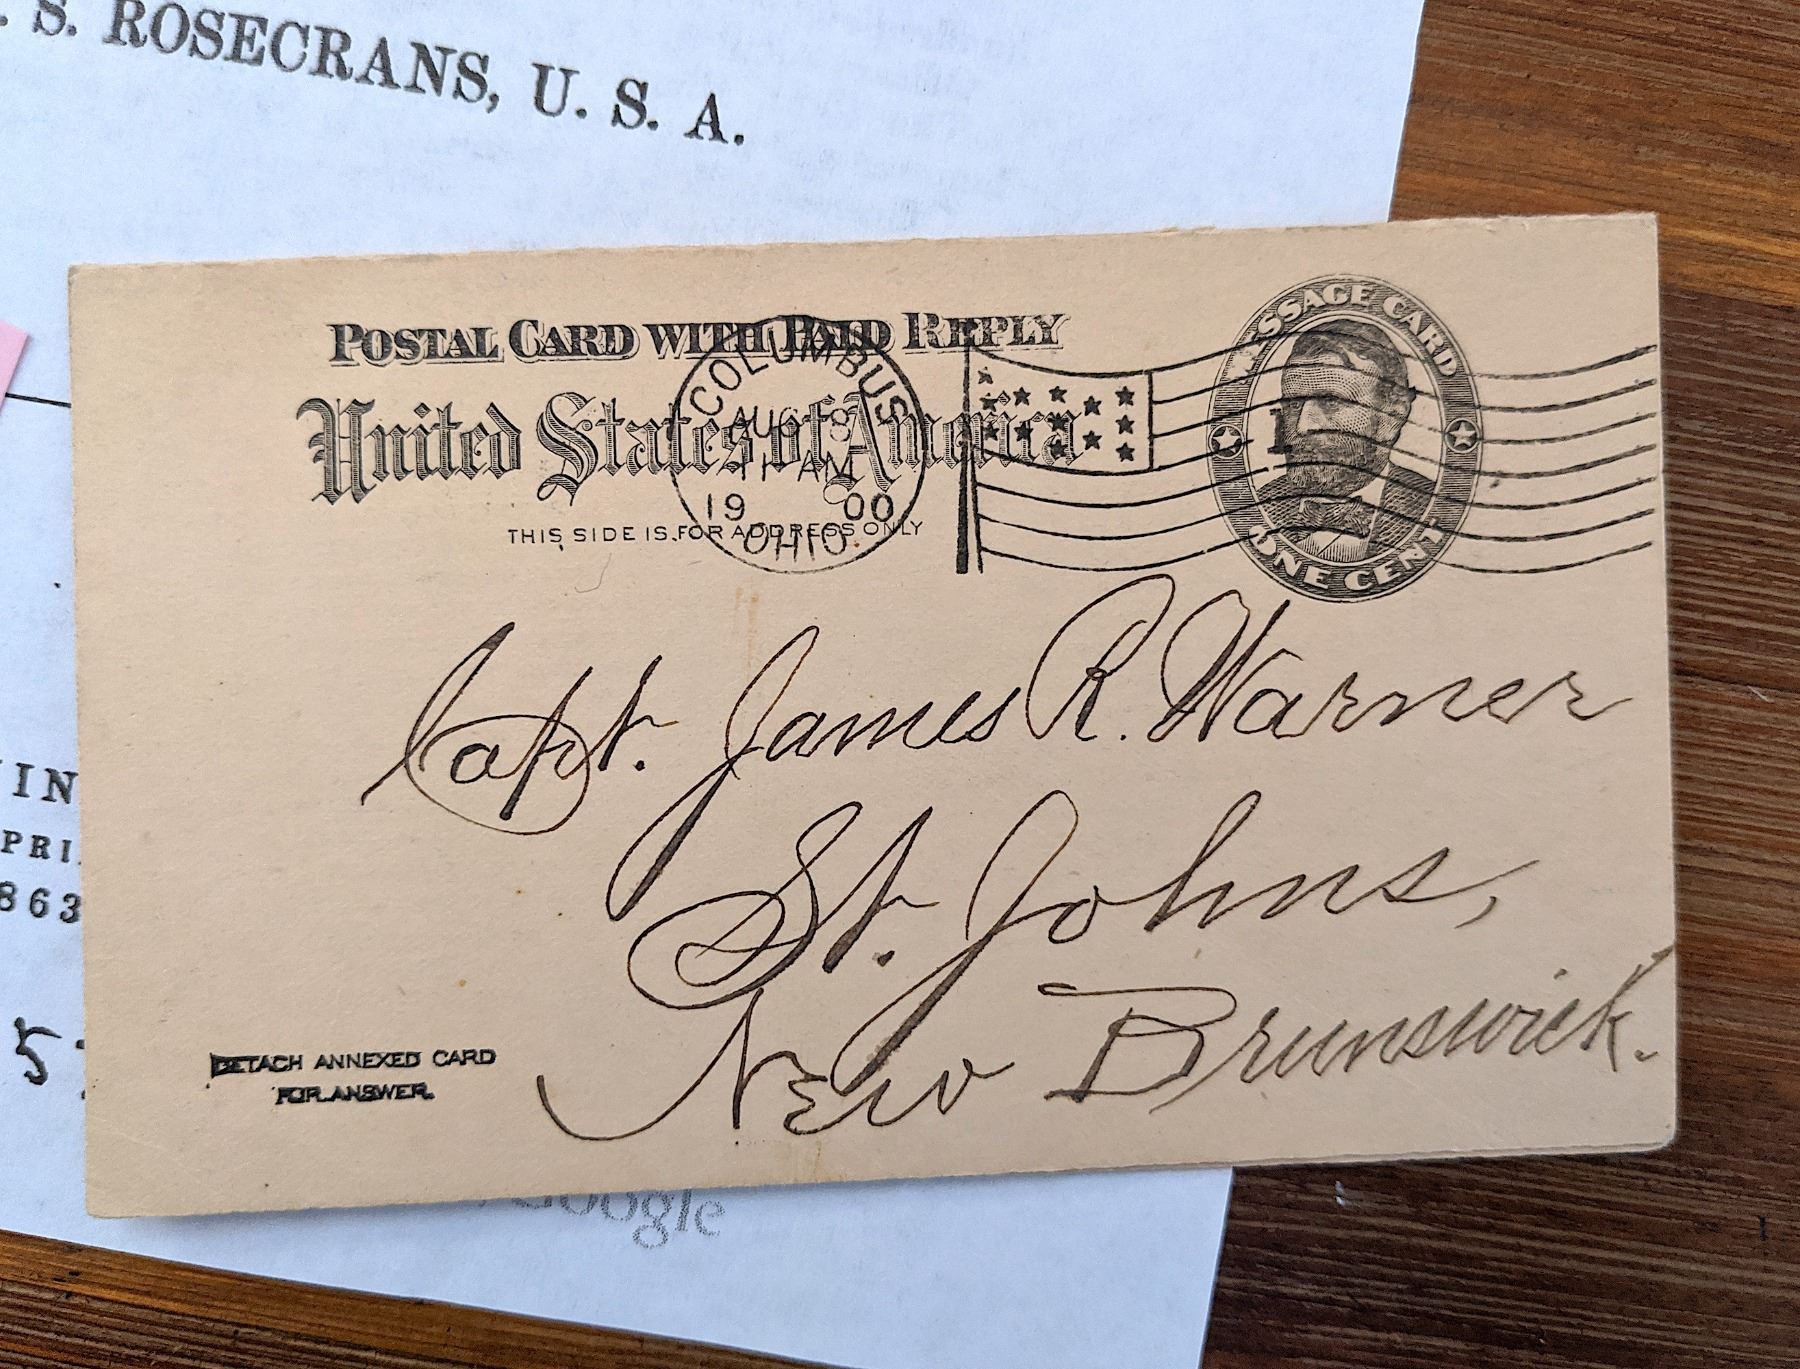 S. ROSECRANS, U. S. A.
POSTAL CARD WITH PAID REPLY
United States of America
THIS SIDE IS FOR ADDRESS ONLY
COLUMBUS
AUG 8
11 AM
1900
OHIO
MESSAGE CARD
1
ONE CENT
Capt. James R. Warner
St. Johns,
New Brunswick.
DETACH ANNEXED CARD
FOR ANSWER.
IN
PRI
863
5
Google